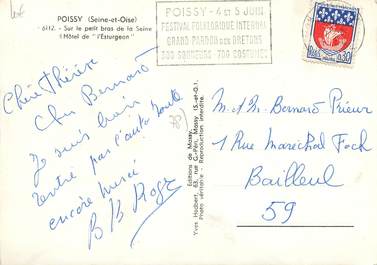 POISSY (Seine-et-Oise)
6412. - Sur le petit bras de la Seine
Hôtel de "l'Esturgeon"
POISSY - 4 et 5 JUIN
FESTIVAL FOLKLORIQUE INTERNAL
GRAND PARDON DES BRETONS
300 SONNEURS 700 COSTUMES
0,30
Chère Thérèse
Cher Bernard
Je suis bien
rentré par l'auto route
encore merci
BB Roge
Editions de Massy,
Yves Hodbert, 63, rue G.-Péri, Massy (S.-et-O.).
Photo véritable - Reproduction interdite.
M. et M. Bernard Prieur
1 Rue Maréchal Foch
Bailleul
59